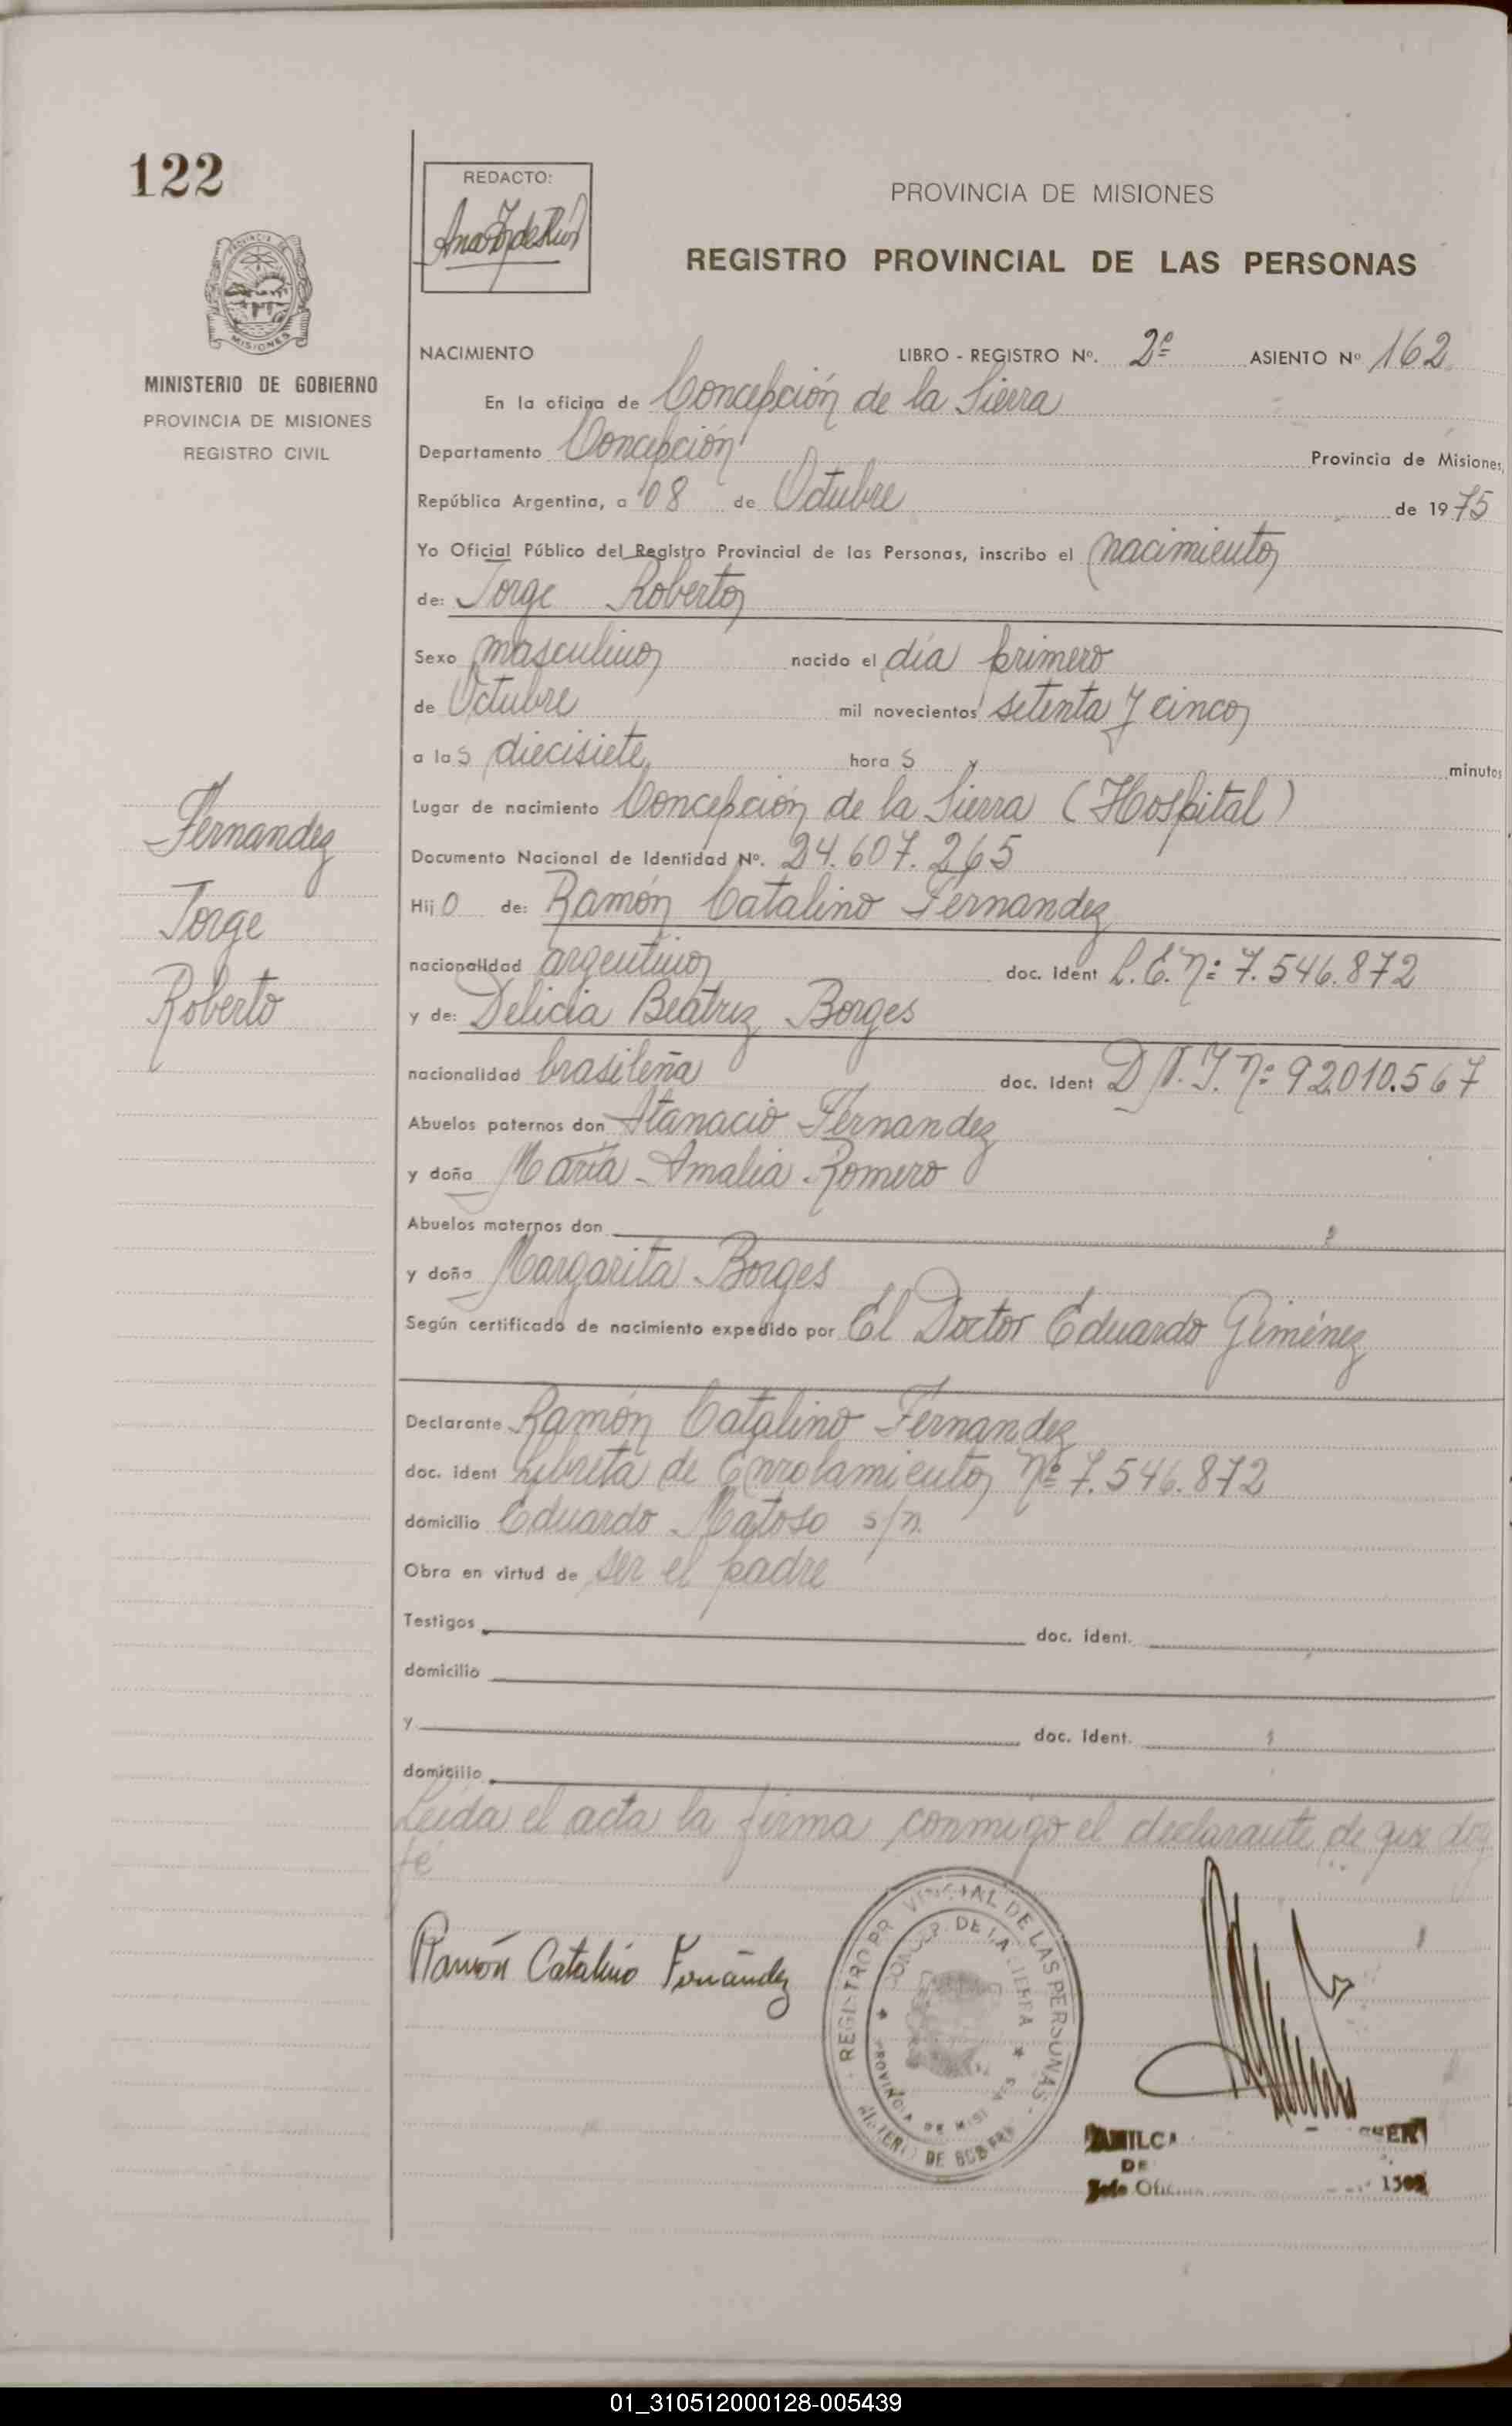 122
REDACTO:
PROVINCIA DE MISIONES
REGISTRO PROVINCIAL DE LAS PERSONAS
MISIONES
MINISTERIO DE GOBIERNO
PROVINCIA DE MISIONES
REGISTRO CIVIL
NACIMIENTO LIBRO - REGISTRO Nº. 2º ASIENTO Nº 162
En la oficina de Concepción de la Sierra
Departamento Concepción Provincia de Misiones,
República Argentina, a 08 de Octubre de 1975
Yo Oficial Público del Registro Provincial de las Personas, inscribo el nacimiento
de: Jorge Roberto
Sexo masculino nacido el día primero
de Octubre mil novecientos setenta y cinco
a las diecisiete horas minutos
Lugar de nacimiento Concepción de la Sierra (Hospital)
Documento Nacional de Identidad Nº. 24.607.265
Hijo de: Ramón Catalino Fernandez
nacionalidad argentino doc. ident L.E. Nº 7.546.872
y de: Delicia Beatriz Borges
nacionalidad brasileña doc. ident D.N.I. Nº 92010.567
Abuelos paternos don Atanacio Fernandez
y doña María Amalia Romero
Abuelos maternos don
y doña Margarita Borges
Según certificado de nacimiento expedido por El Doctor Eduardo Giménez
Fernandez
Jorge
Roberto
Declarante Ramón Catalino Fernandez
doc. ident Libreta de Enrolamiento Nº 7.546.872
domicilio Eduardo Matoso s/n.
Obra en virtud de ser el padre
Testigos doc. ident.
domicilio
y doc. ident.
domicilio
Leída el acta la firma conmigo el declarante de que doy
fé
Ramón Catalino Fernández
REGISTRO PROVINCIAL DE LAS PERSONAS
CONCEP. DE LA SIERRA
PROVINCIA DE MISIONES
MINISTERIO DE GOBIERNO
Jefe
01_310512000128-005439